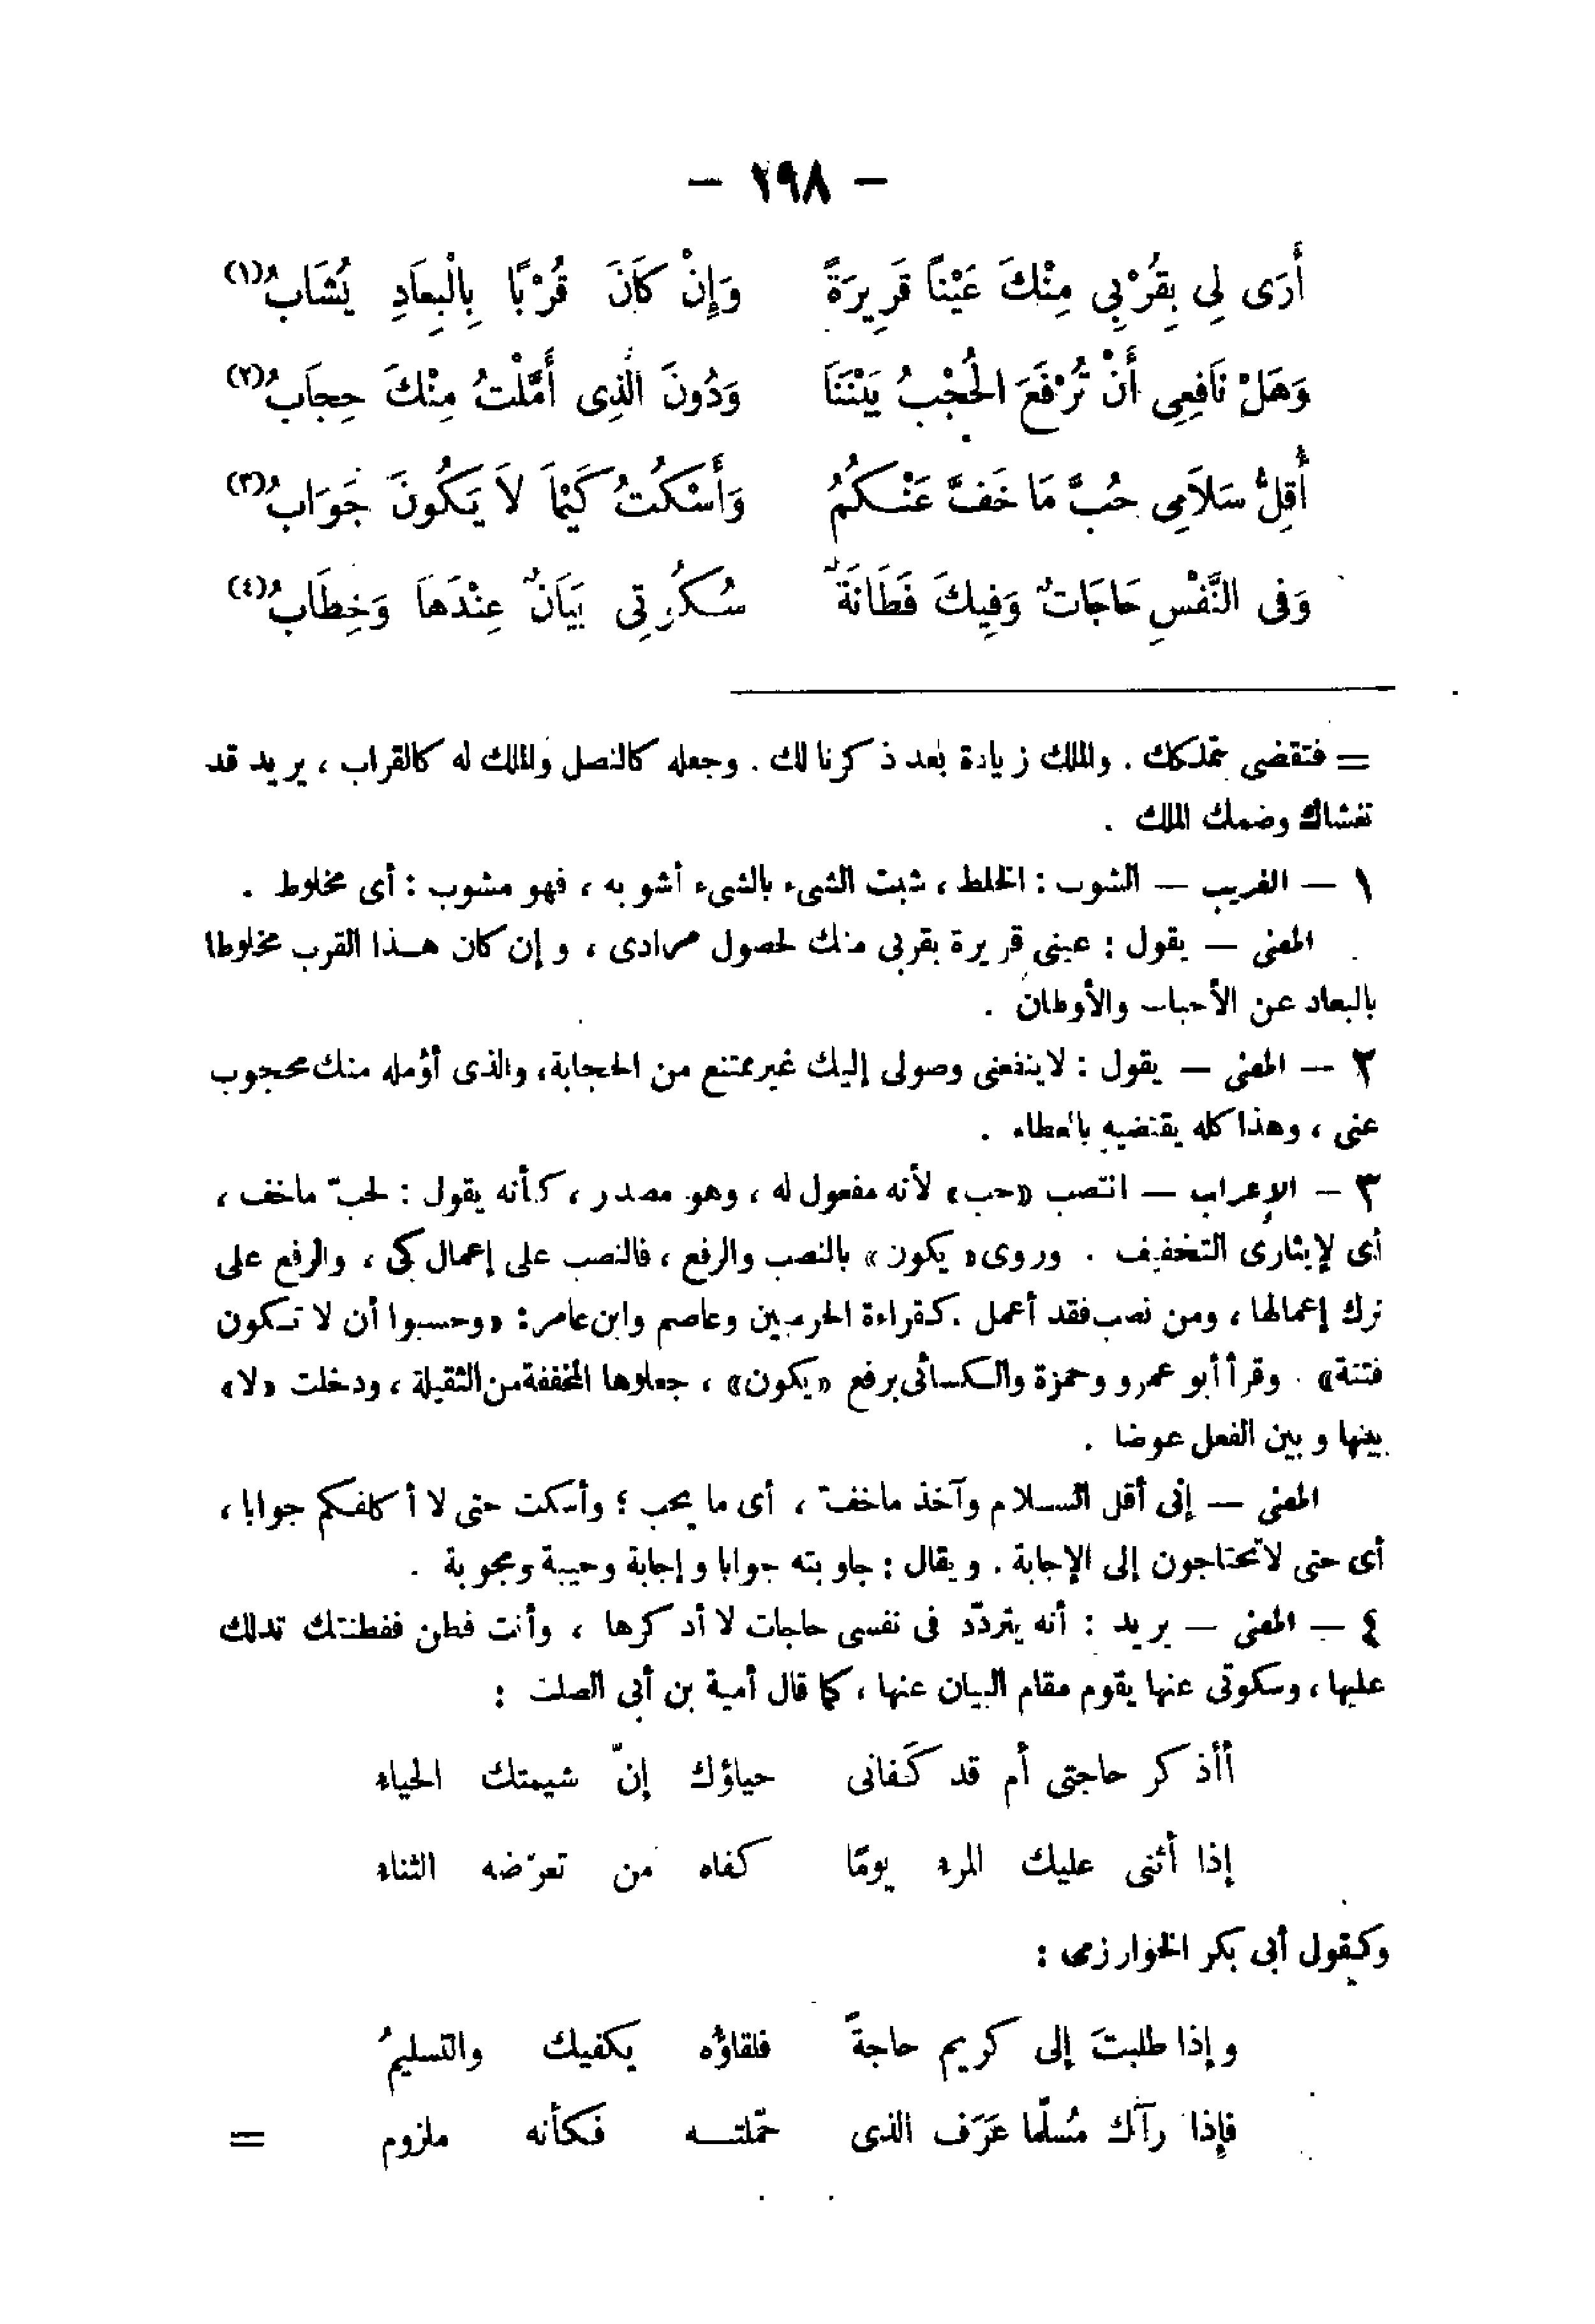 — ١٩٨ —
أَرَى لِى بِقُرْبِى مِنْكَ عَيْناً قَرِيرَةً وَإِنْ كَانَ قُرْبًا بِالْبِعَادِ يُشَابُ(١)
وَهَلْ نَافِعِى أَنْ تُرْفَعَ الْحُجْبُ بَيْنَنَا وَدُونَ الَّذِى أَمَّلْتُ مِنْكَ حِجَابُ(٢)
أُقِلُّ سَلاَمِى حُبَّ مَا خَفَّ عَنْكُمُ وَأَسْكُتُ كَيْمَا لاَ يَكُونَ جَوَابُ(٣)
وَفى النَّفْسِ حَاجَاتٌ وَفِيكَ فَطَانَةٌ سُكُوتِى بَيَانٌ عِنْدَهَا وَخِطَابُ(٤)
= فتقضى بملكك . والملك زيادة بعد ذكرنا لك . وجعله كالنصل والملك له كالقراب ، يريد قد
تغشاك وضمك الملك .
١ — الغريب — الشوب : الخلط ، شبت الشىء بالشىء أشوبه ، فهو مشوب : أى مخلوط .
المعنى — يقول : عينى قريرة بقربى منك لحصول مرادى ، وإن كان هذا القرب مخلوطا
بالبعاد عن الأحباب والأوطان .
٢ — المعنى — يقول : لاينفعنى وصولى إليك غير ممتنع من الحجابة، والذى أؤمله منك محجوب
عنى ، وهذا كله يقتضيه بالعطاء .
٣ — الإعراب — انتصب «حب» لأنه مفعول له ، وهو مصدر ، كأنه يقول : لحبّ ماخف ،
أى لإيثارى التخفيف . وروى «يكون» بالنصب والرفع ، فالنصب على إعمال كى ، والرفع على
ترك إعمالها ، ومن نصب فقد أعمل . كقراءة الحرميين وعاصم وابن عامر : «وحسبوا أن لا تكون
فتنة» . وقرأ أبو عمرو وحمزة والكسائى برفع «يكون» ، جعلوها المخففة من الثقيلة ، ودخلت «لا»
بينها وبين الفعل عوضا .
المعنى — إنى أقل السلام وآخذ ماخفّ ، أى ما يحب ؛ وأسكت حتى لا أكلفكم جوابا ،
أى حتى لاتحتاجون إلى الإجابة . ويقال : جاوبته جوابا وإجابة وجيبة ومجوبة .
٤ — المعنى — يريد : أنه يتردّد فى نفسى حاجات لا أذكرها ، وأنت فطن ففطنتك تدلك
عليها ، وسكوتى عنها يقوم مقام البيان عنها ، كما قال أمية بن أبى الصلت :
أأذكر حاجتى أم قد كَفانى حياؤك إنّ شيمتك الحياء
إذا أثنى عليك المرء يومًا كفاه من تعرّضه الثناء
وكقول أبى بكر الخوارزمى :
وإذا طلبتَ إلى كريم حاجةً فلقاؤه يكفيك والتسليمُ
فإذا رآك مُسلّما عَرَف الذى حمّلته فكأنه ملزوم =